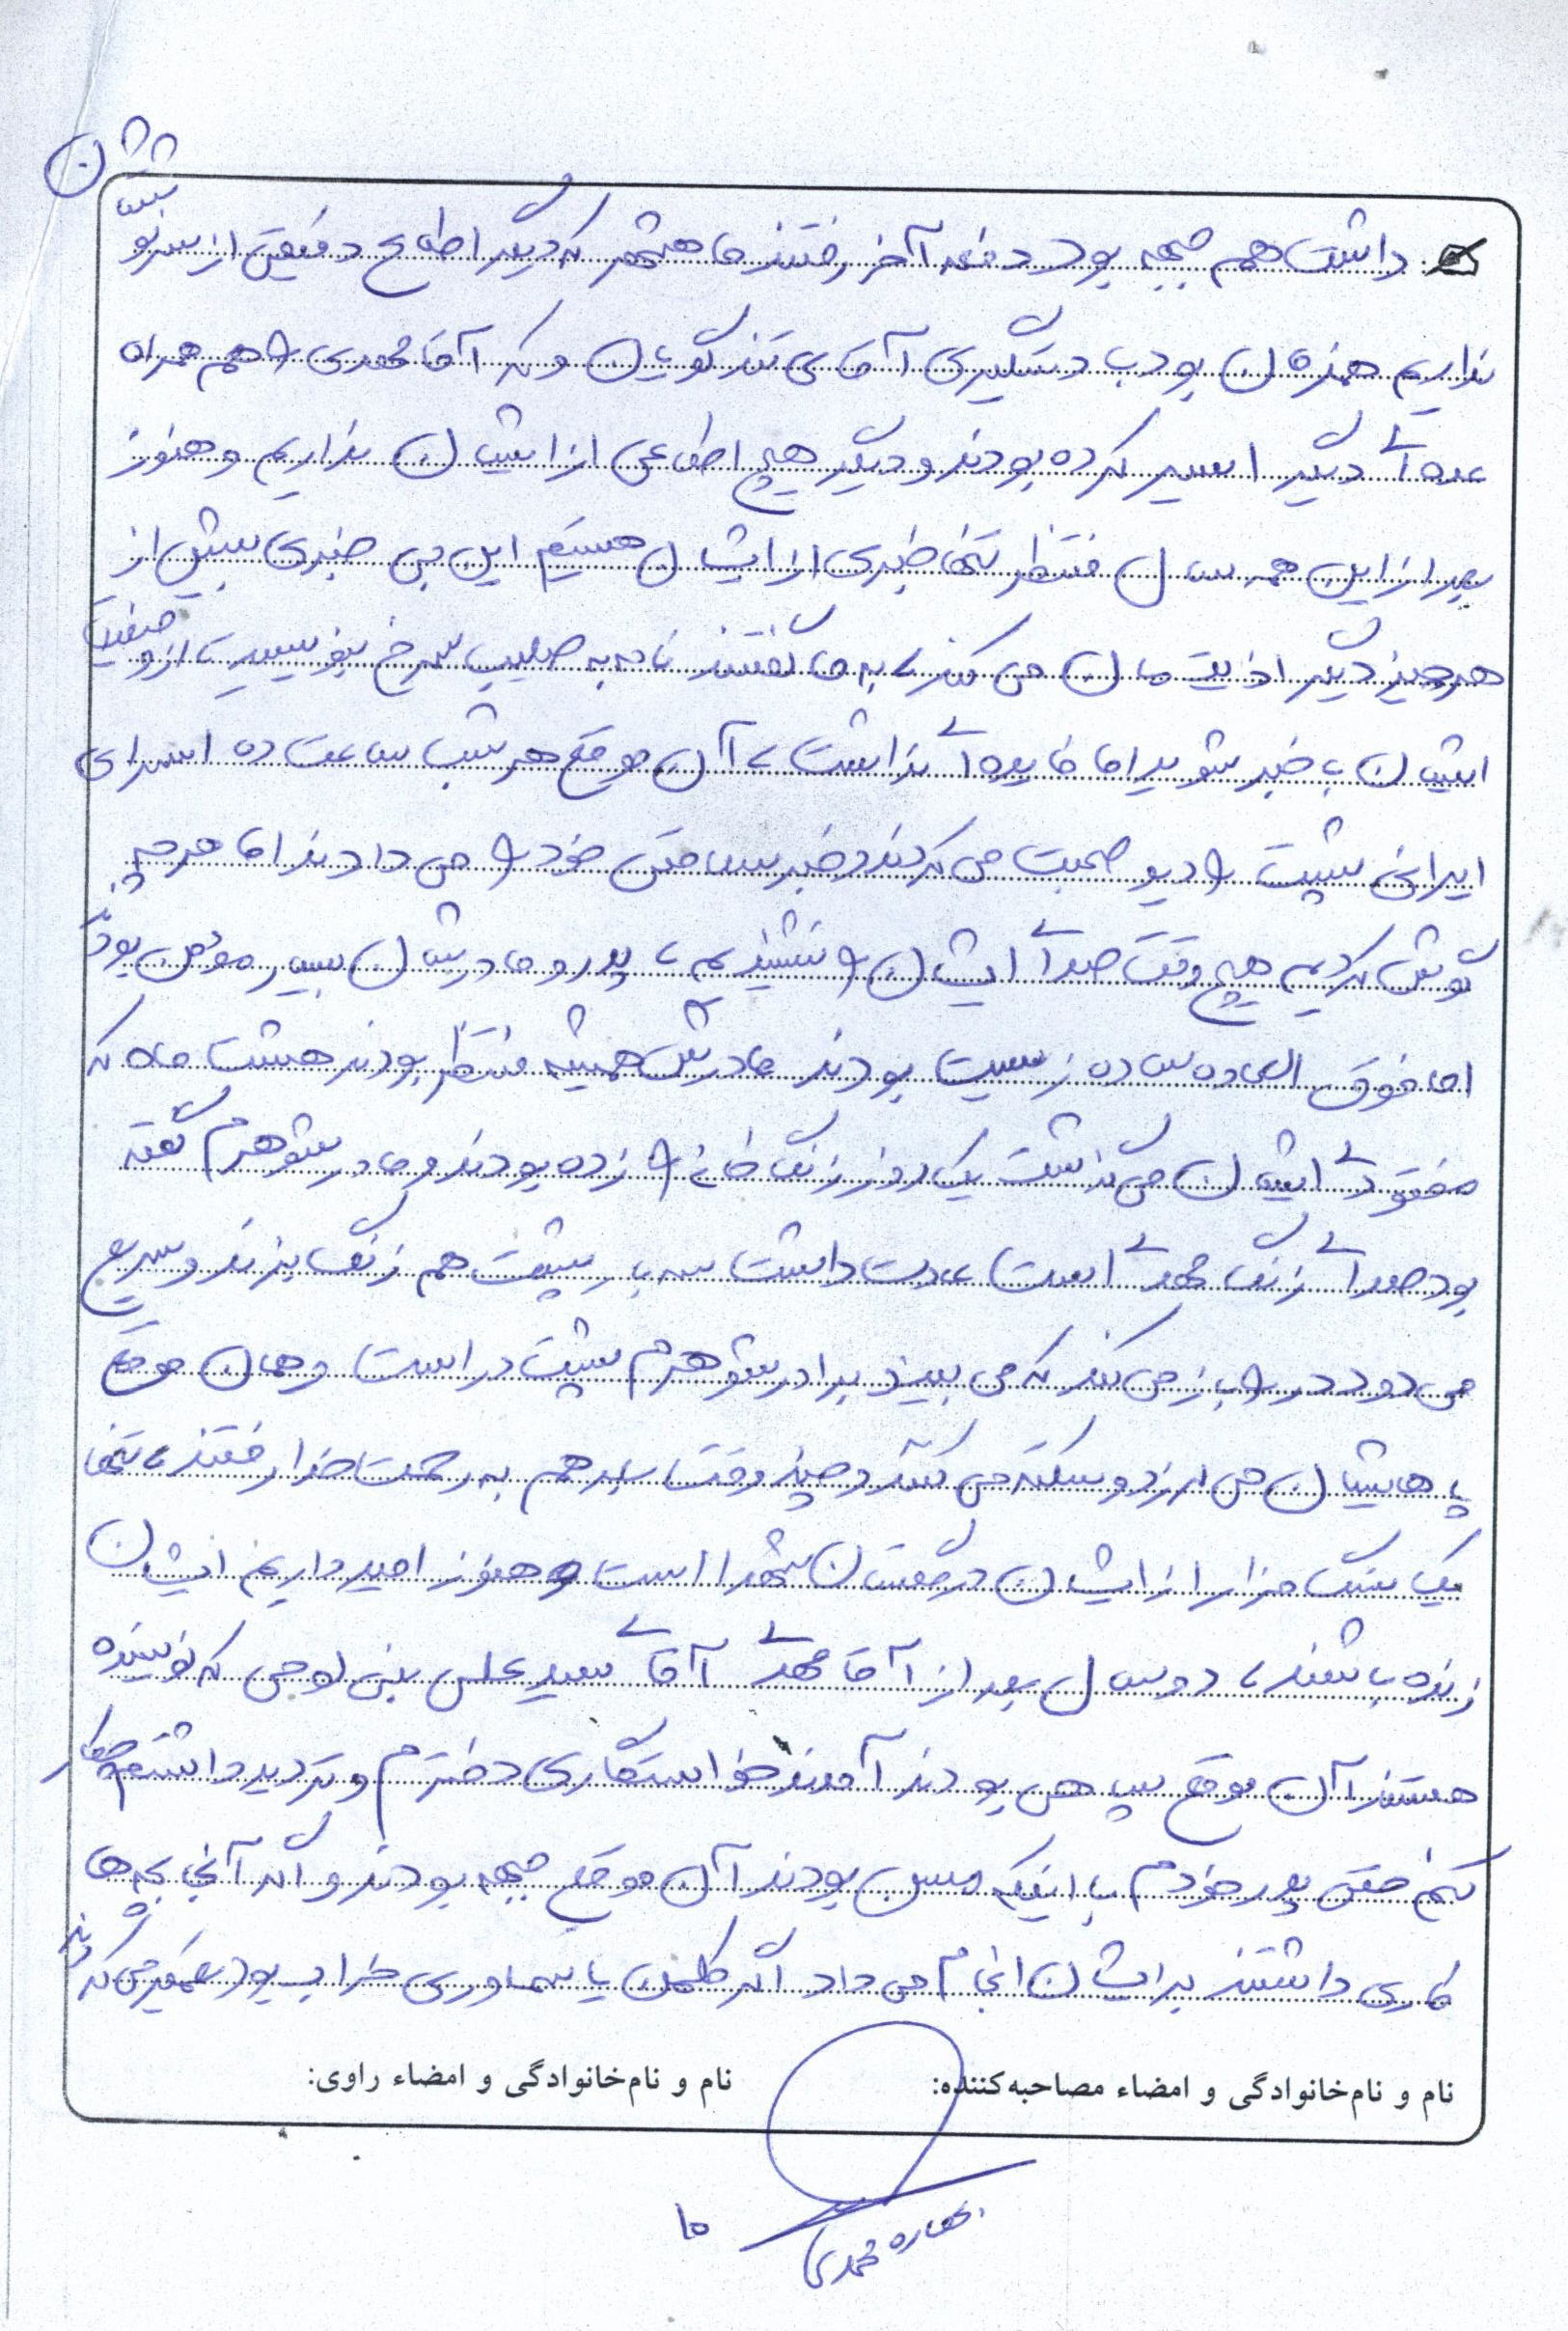 داشت هم جبهه بود دفعه آخر رفتند ماهشهر که دیگر اطلاع دقیقی از سرنوشتشان
نداریم همزمان بود با دستگیری آقای تندگویان و که آقا مهدی را هم همراه
عده‌ای دیگر اسیر کرده بودند و دیگر هیچ اطلاعی از ایشان نداریم و هنوز
بعد از این همه سال منتظر تنها خبری از ایشان هستیم این بی خبری بیش از
هرچیز دیگر اذیتمان می کند، به ما گفتند نامه به صلیب سرخ بنویسید، از وضعیت
ایشان با خبر شوید اما فایده‌ای نداشت، آن موقع هر شب ساعت ده اسرای
ایرانی پشت رادیو صحبت می کردند و خبر سلامتی خود را می دادند اما هرچه
گوش کردیم هیچ وقت صدای ایشان را نشنیدیم، پدر و مادرشان بسیار مومن بودند
اما فوق العاده ساده زیست بودند مادرش همیشه منتظر بودند هشت ماه که
مفقودی ایشان می گذشت یک روز زنگ خانه را زده بودند و مادر شوهرم گفته
بود صدای زنگ مهدی است، عادت داشت سه بار پشت هم زنگ بزند و سریع
می دود در را باز می کند که می بیند برادر شوهرم پشت در است و همان موقع
پاهایشان می لرزد و سکته می کنند و چند وقت بعد هم به رحمت خدا رفتند، تنها
یک سنگ مزار از ایشان در گلستان شهدا است و هنوز امید داریم ایشان
زنده باشند، دو سال بعد از آقا مهدی آقای سعید بنی لوحی که نویسنده
هستند آن موقع سپاهی بودند آمدند خواستگاری دخترم و تردید داشتم چکار
کنم حتی پدر خودم با اینکه مسن بودند آن موقع جبهه بودند و اگر آنجا بچه ها
کاری داشتند برایشان انجام می داد اگر کلمن یا سماوری خراب بود تعمیر می کردند
نام و نام‌خانوادگی و امضاء مصاحبه‌کننده: نام و نام‌خانوادگی و امضاء راوی:
بهاره محمدی
۱۵